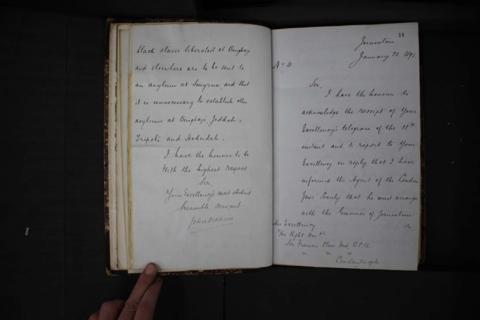 black slaves liberated at Benghazi
and elsewhere are to be sent to
an asylum at Smyrna and that
it is unnecessary to establish other
asylums at Benghazi, Jeddah,
Tripoli and Hodeidah.
I have the honour to be
with the highest respect
Sir,
Your Excellency's most obedient
humble servant
John Dickson
11
Jerusalem
January 1891.
No 4
Sir,
I have the honour to
acknowledge the receipt of Your
Excellency's telegram of the 18th
instant and to report to Your
Excellency in reply that I have
informed the Agent of the London
Jews Society that he must arrange
with the Governor of Jerusalem
His Excellency
The Right Honble
Sir
Constantinople